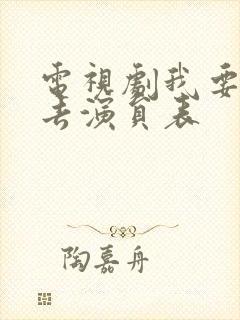 電視劇我要
去演員表
陶嘉舟